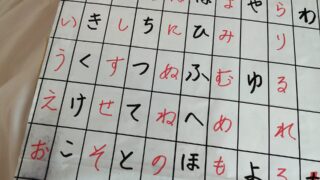 らわ
いきしちにひみり
うくすつぬふむゆる
えけせてねへめれ
おこそとのほもよろ